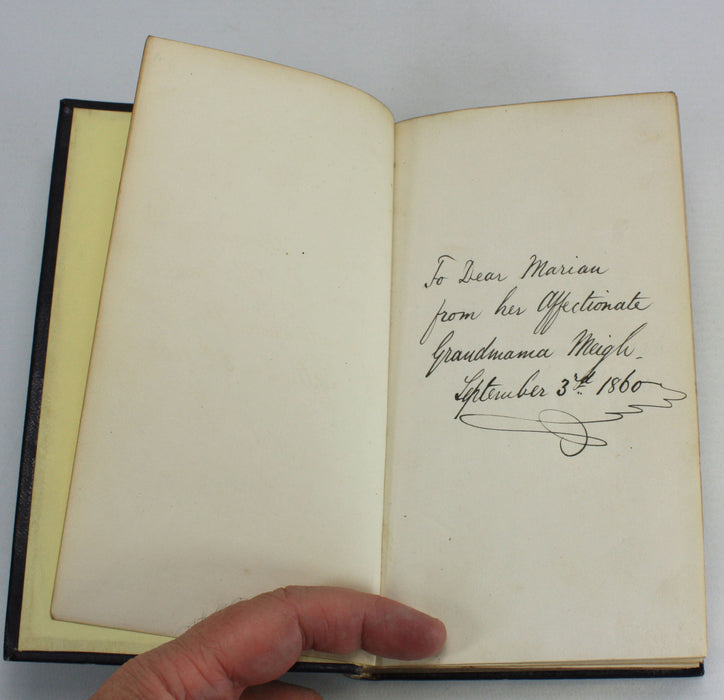 To Dear Marian
from her Affectionate
Grandmama Meigh.
September 3rd. 1860